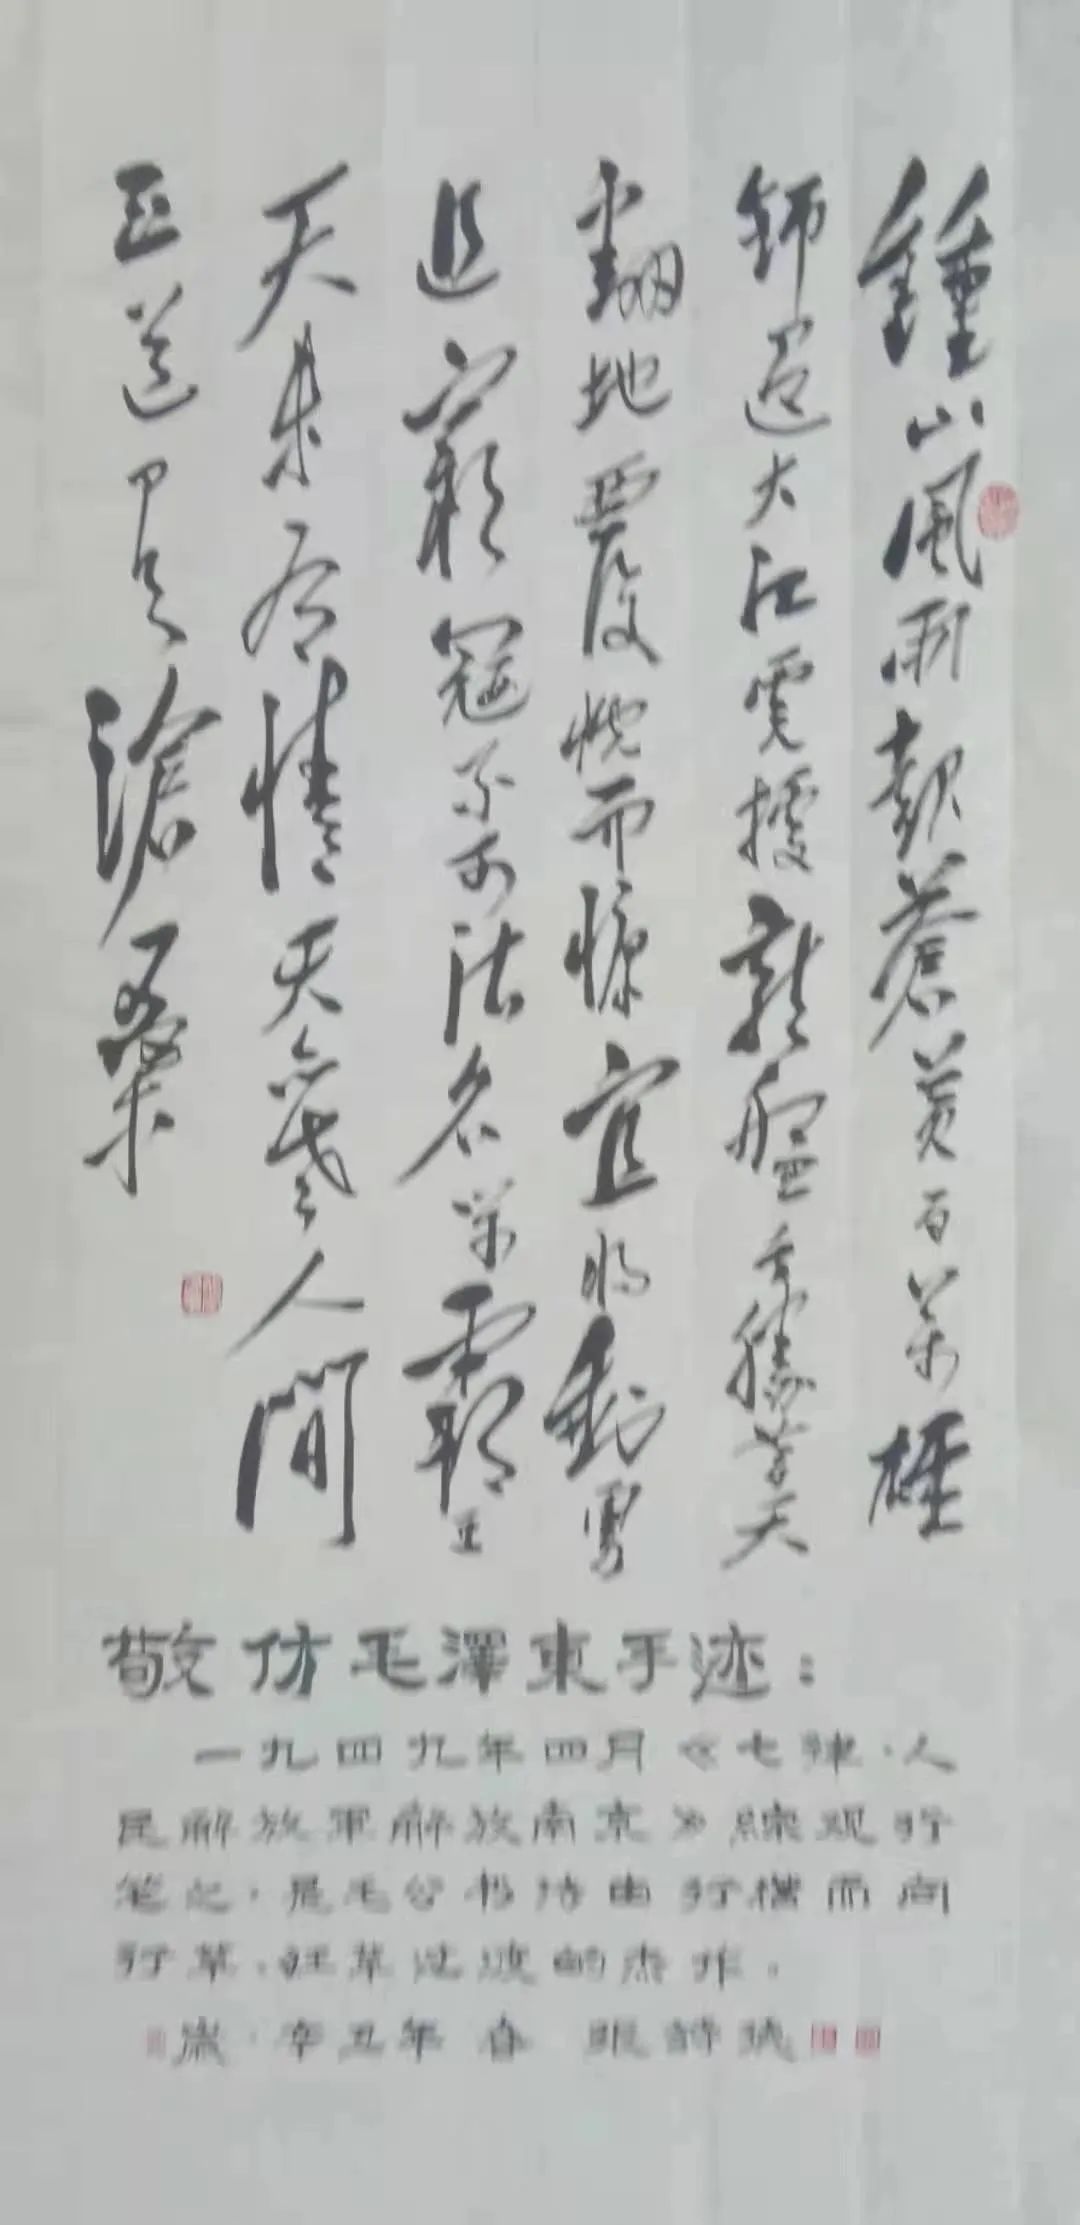 鍾山風雨起蒼黃百萬雄
師過大江虎據龍盤今勝昔天
翻地覆慨而慷宜將剩勇
追窮寇不可沽名學霸王
天若有情天亦老人間
正道是滄桑
敬仿毛澤東手迹：
一九四九年四月《七律·人
民解放軍解放南京》綜观行
笔之，是毛公书诗由行楷而向
行草、狂草过渡的杰作。
岚·辛丑年春